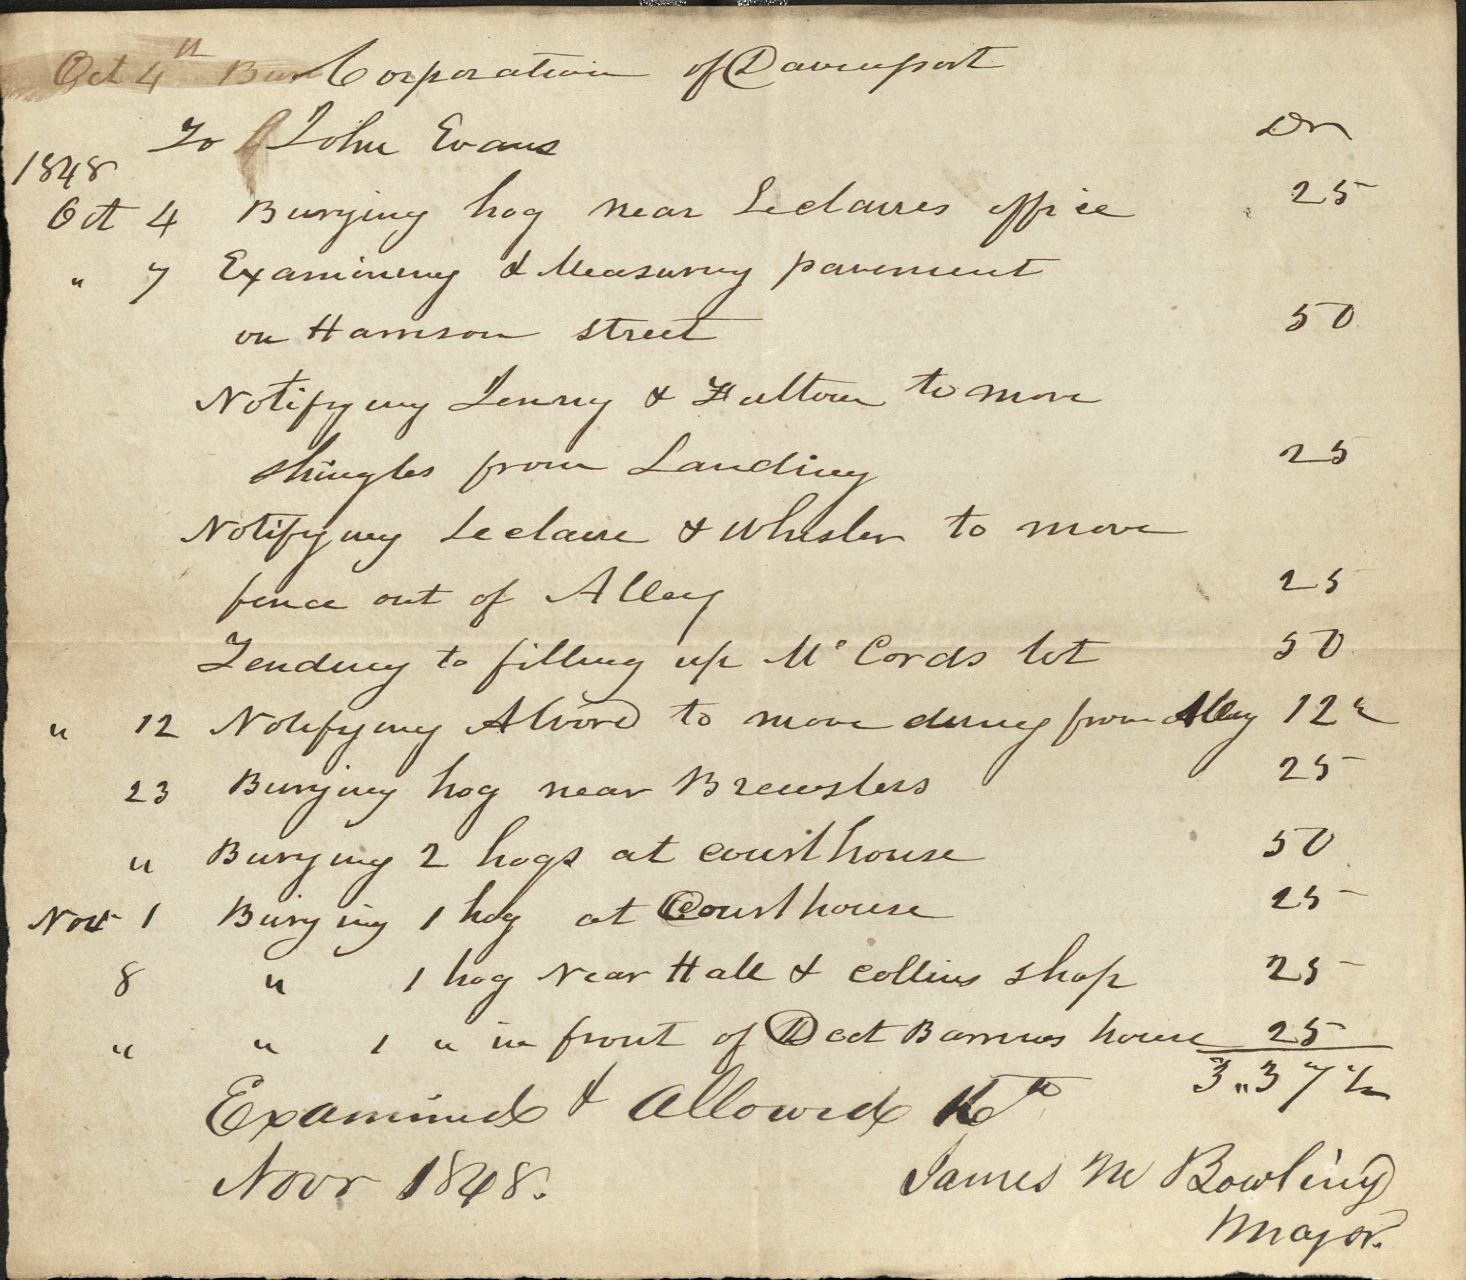 Oct 4th Bur Corporation of Davenport
To John Evans Dr
1848
Oct 4 Burying hog near Leclaires office 25
" 7 Examining & Measuring pavement
on Harrison street 50
Notifying Jenny & Fulton to move
shingles from Landing 25
Notifying Leclaire & Whisler to move
fence out of Alley 25
Tending to filling up Mc Cords lot 50
" 12 Notifying Alvord to move dung from Alley 12½
23 Burying hog near Brewsters 25
" Burying 2 hogs at courthouse 50
Nov 1 Burying 1 hog at Courthouse 25
8 " 1 hog Near Hall & Collins shop 25
" " 1 " in front of Doct Barrows house 25
3.,37½
Examined & Allowed th
Novr 1848. James M Bowling
Mayor.